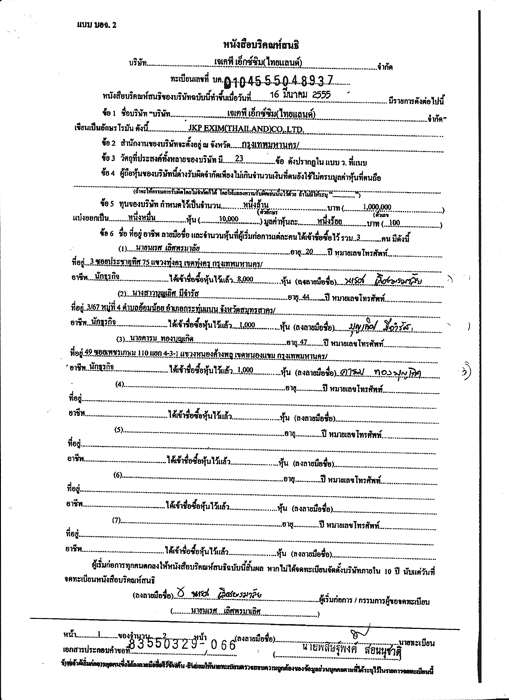 แบบ บอจ. 2
หนังสือบริคณห์สนธิ
บริษัท เจเคพี เอ็กซ์ซิม(ไทยแลนด์) จำกัด
ทะเบียนเลขที่ บค. 0104555048937
หนังสือบริคณห์สนธิของบริษัทฉบับนี้ทำขึ้นเมื่อวันที่ 16 มีนาคม 2555 มีรายการดังต่อไปนี้
ข้อ 1 ชื่อบริษัท "บริษัท เจเคพี เอ็กซ์ซิม(ไทยแลนด์) จำกัด"
เขียนเป็นอักษรโรมัน ดังนี้ JKP EXIM(THAILAND)CO.,LTD.
ข้อ 2 สำนักงานของบริษัทจะตั้งอยู่ ณ จังหวัด กรุงเทพมหานคร/
ข้อ 3 วัตถุที่ประสงค์ทั้งหลายของบริษัท มี 23 ข้อ ดังปรากฏใน แบบ ว. ที่แนบ
ข้อ 4 ผู้ถือหุ้นของบริษัทนี้ต่างรับผิดจำกัดเพียงไม่เกินจำนวนเงินที่ตนยังใช้ไม่ครบมูลค่าหุ้นที่ตนถือ
ข้อ 5 ทุนของบริษัท กำหนดไว้เป็นจำนวน หนึ่งล้าน บาท ( 1,000,000 )
(ตัวอักษร) (ตัวเลข)
แบ่งออกเป็น หนึ่งหมื่น หุ้น ( 10,000 ) มูลค่าหุ้นละ หนึ่งร้อย บาท ( 100 )
ข้อ 6 ชื่อ ที่อยู่ อาชีพ ลายมือชื่อ และจำนวนหุ้นที่ผู้เริ่มก่อการแต่ละคนได้เข้าชื่อซื้อไว้ รวม 3 คน มีดังนี้
(1) นายนเรศ เลิศพรมาลัย อายุ 20 ปี หมายเลขโทรศัพท์
ที่อยู่ 3 ซอยประชาอุทิศ 75 แขวงทุ่งครุ เขตทุ่งครุ กรุงเทพมหานคร/
อาชีพ นักธุรกิจ ได้เข้าชื่อซื้อหุ้นไว้แล้ว 8,000 หุ้น (ลงลายมือชื่อ)
(2) นางสาวบุญเลิศ มีจำรัส อายุ 44 ปี หมายเลขโทรศัพท์
ที่อยู่ 3/67 หมู่ที่ 4 ตำบลอ้อมน้อย อำเภอกระทุ่มแบน จังหวัดสมุทรสาคร/
อาชีพ นักธุรกิจ ได้เข้าชื่อซื้อหุ้นไว้แล้ว 1,000 หุ้น (ลงลายมือชื่อ)
(3) นายดารม ทองบุญเกิด อายุ 47 ปี หมายเลขโทรศัพท์
ที่อยู่ 49 ซอยเพชรเกษม 110 แยก 4-3-1 แขวงหนองค้างพลู เขตหนองแขม กรุงเทพมหานคร/
อาชีพ นักธุรกิจ ได้เข้าชื่อซื้อหุ้นไว้แล้ว 1,000 หุ้น (ลงลายมือชื่อ) 3)
(4) อายุ ปี หมายเลขโทรศัพท์
ที่อยู่
อาชีพ ได้เข้าชื่อซื้อหุ้นไว้แล้ว หุ้น (ลงลายมือชื่อ)
(5) อายุ ปี หมายเลขโทรศัพท์
ที่อยู่
อาชีพ ได้เข้าชื่อซื้อหุ้นไว้แล้ว หุ้น (ลงลายมือชื่อ)
(6) อายุ ปี หมายเลขโทรศัพท์
ที่อยู่
อาชีพ ได้เข้าชื่อซื้อหุ้นไว้แล้ว หุ้น (ลงลายมือชื่อ)
(7) อายุ ปี หมายเลขโทรศัพท์
ที่อยู่
อาชีพ ได้เข้าชื่อซื้อหุ้นไว้แล้ว หุ้น (ลงลายมือชื่อ)
ผู้เริ่มก่อการทุกคนตกลงให้หนังสือบริคณห์สนธิฉบับนี้สิ้นผล หากไม่ได้จดทะเบียนจัดตั้งบริษัทภายใน 10 ปี นับแต่วันที่
จดทะเบียนหนังสือบริคณห์สนธิ
(ลงลายมือชื่อ) ผู้เริ่มก่อการ / กรรมการผู้ขอจดทะเบียน
หน้า 1 ของจำนวน 2 หน้า (ลงลายมือชื่อ) นายทะเบียน
เอกสารประกอบคำขอที่ 83550329-066 นายพสิษฐ์พงศ์ สอนนุชาติ